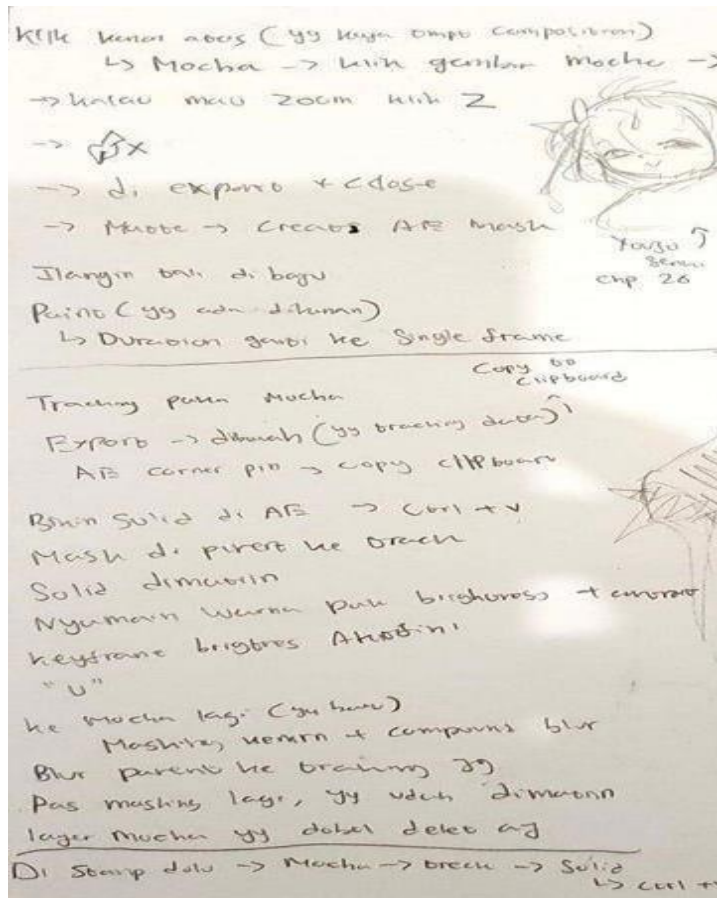 Klik kanan atas (yg kaya compositon)
↳ Mocha -> klik gambar mocha ->
-> kalau mau zoom klik Z
-> x
-> di export + close
-> Matte -> Create AE Mask
Ilangin tali di baju
Paint (yg ada di kanan)
↳ Duration ganti ke Single frame
Yaiju
chp 26
Copy to Clipboard
Tracking pake Mocha
Export -> dibawah (yg tracking data)
AE corner pin -> copy clipboard
Bikin Solid di AE -> Ctrl + v
Mask di parent ke track
Solid dimatiin
Nyamain warna pake +
Keyframe
"U"
ke Mocha lagi (yg baru)
Masking + compound blur
Blur parent ke tracking jg
Pas masking lagi, yg udah dimatiin
layer Mocha yg dobel delet aj
Di Stamp dulu -> Mocha -> track -> Solid
↳ Ctrl +